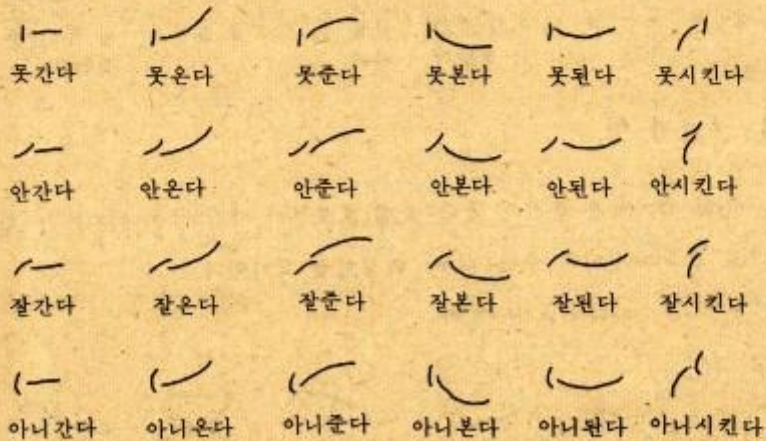 못간다 못온다 못준다 못본다 못된다 못시킨다
안간다 안온다 안준다 안본다 안된다 안시킨다
잘간다 잘온다 잘준다 잘본다 잘된다 잘시킨다
아니간다 아니온다 아니준다 아니본다 아니된다 아니시킨다